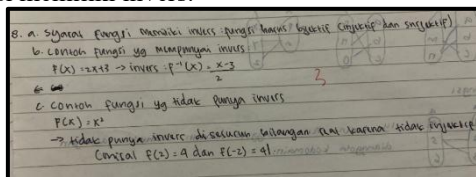 8. a. Syarat fungsi memiliki invers : fungsi harus bijektif (injektif dan surjektif)
b. contoh fungsi yg mempunyai invers
f(x) = 2x+3 → invers : f⁻¹(x) = x-3
2
3
c. contoh fungsi yg tidak punya invers
f(x) = x²
→ tidak punya invers di seluruh bilangan real karna tidak injektif
(misal f(2) = 4 dan f(-2) = 4)